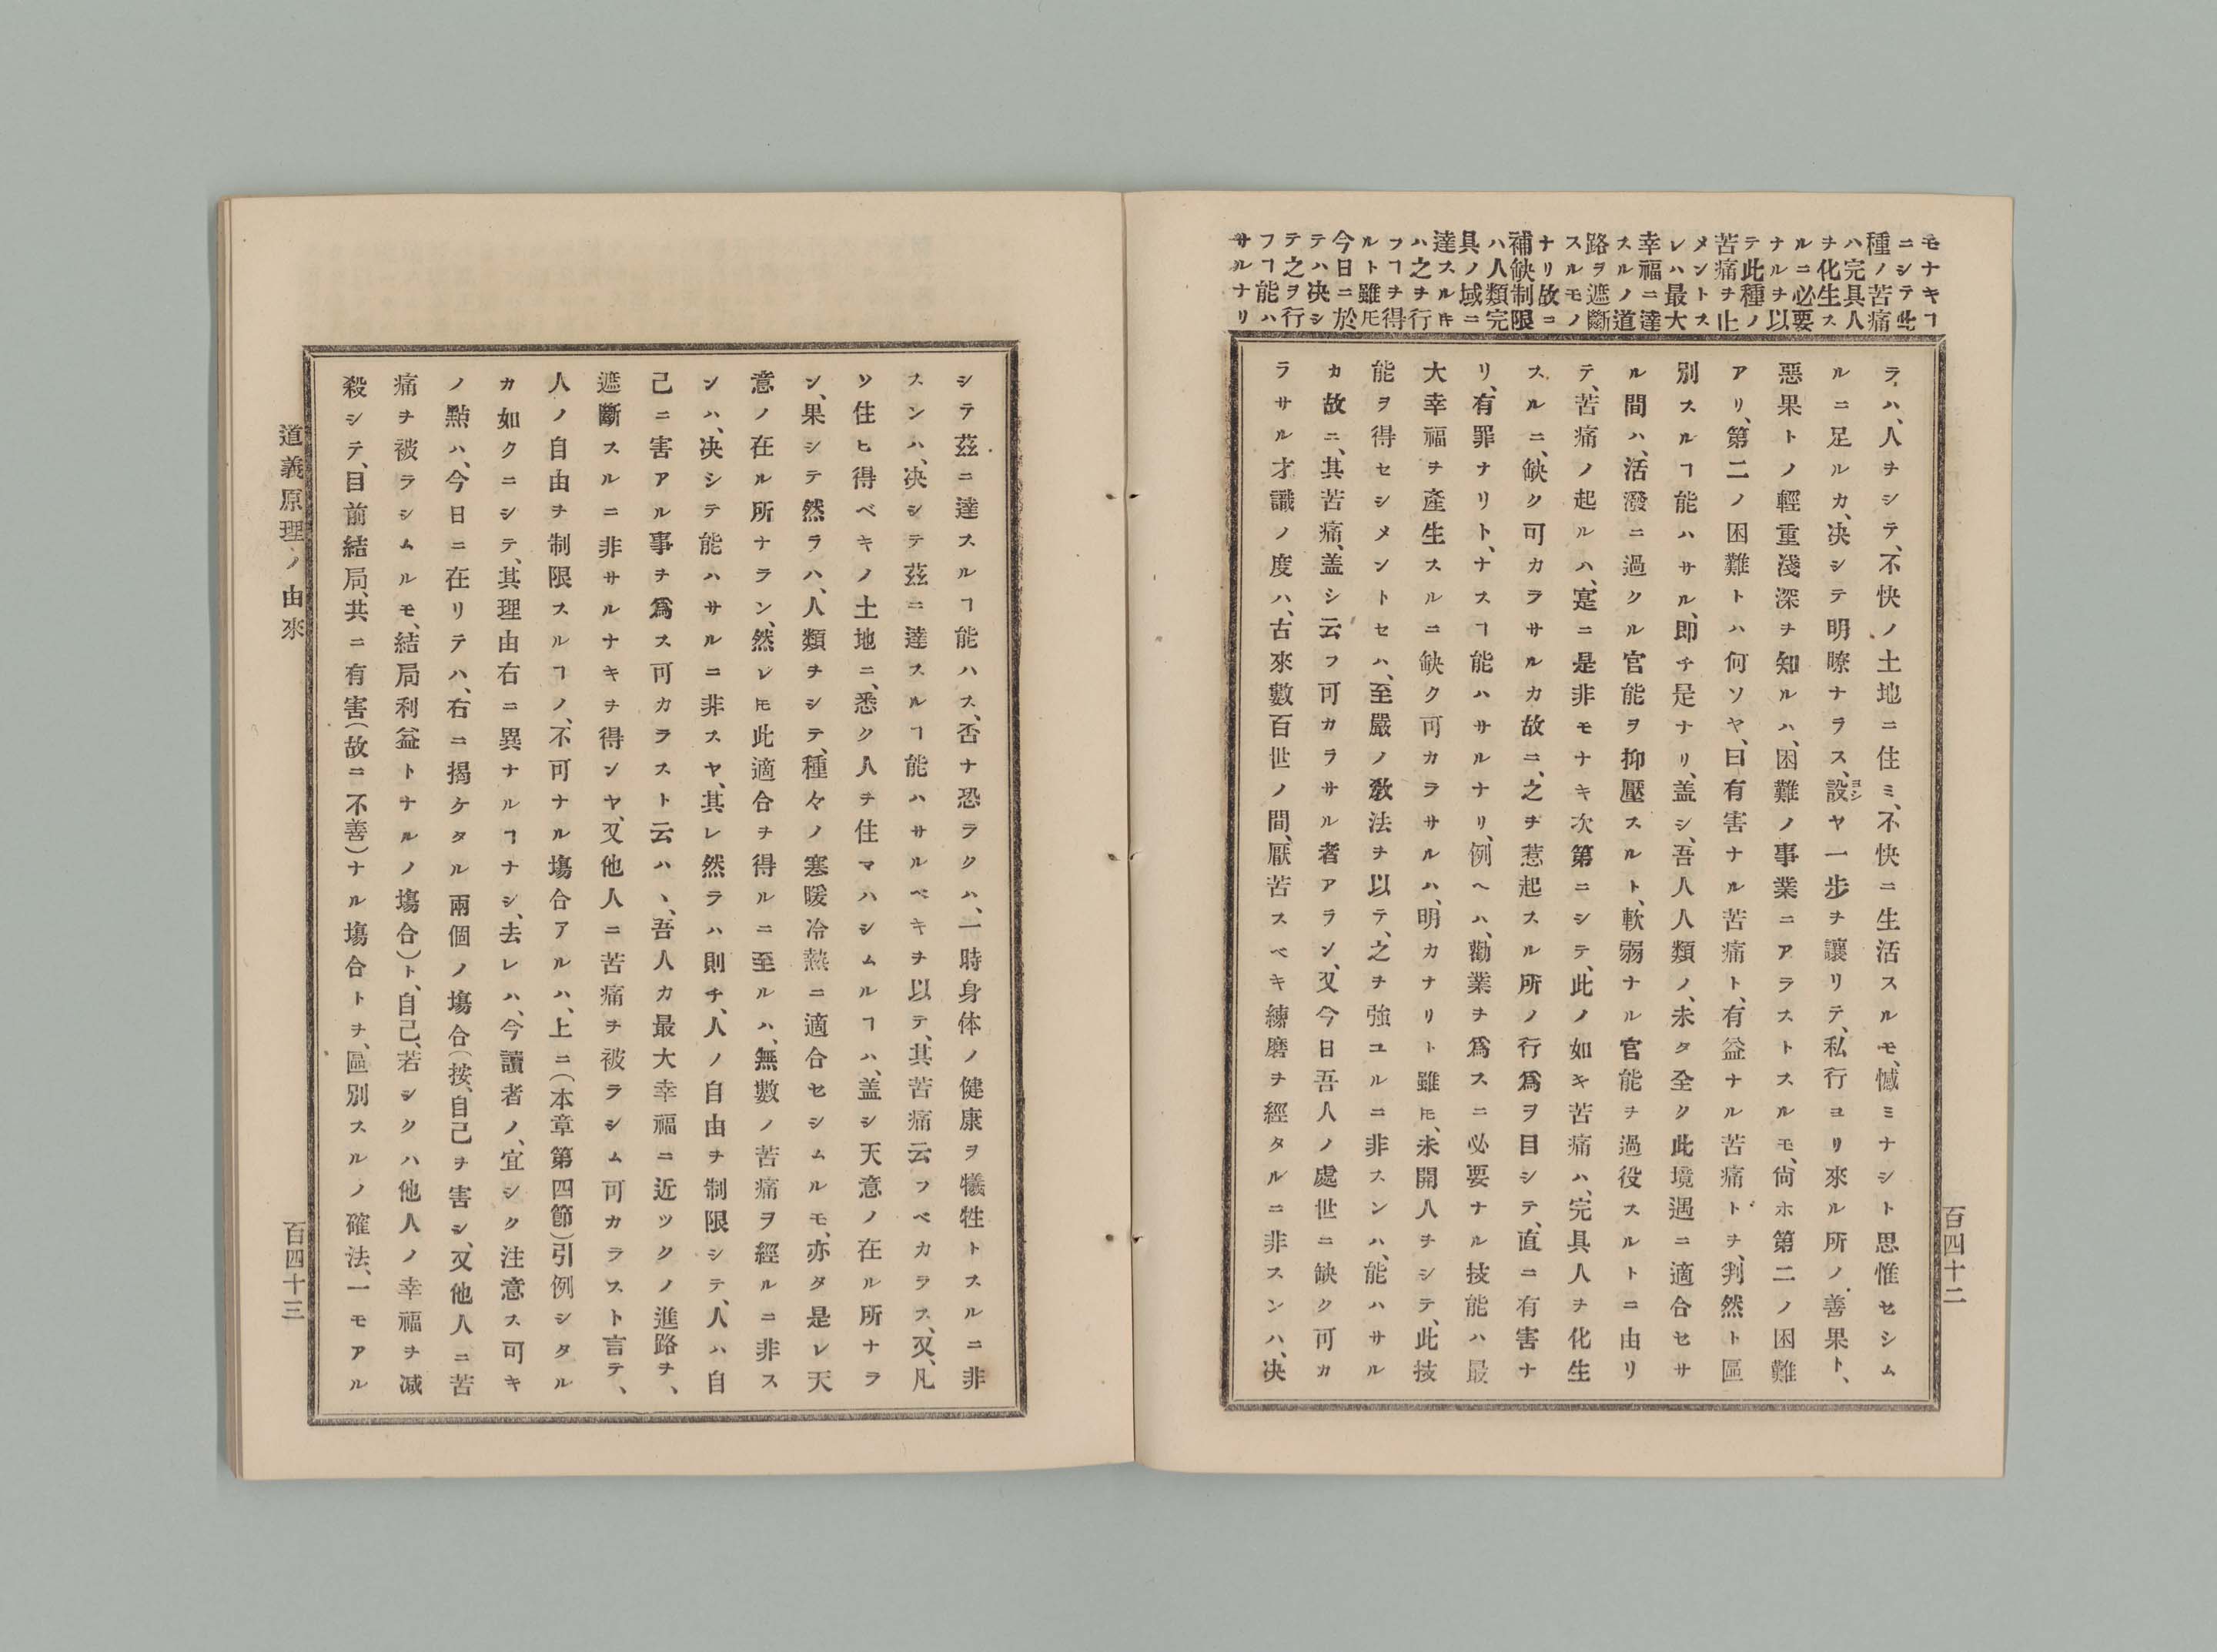 モナキヿ
ニシテ此
種ノ苦痛
ハ完具人
ヲ化生ス
ルニ必要
ナルヲ以
テ此種ノ
苦痛ヲ止
メントス
レハ最大
幸福ニ達
スルノ道
路ヲ遮斷
スルモノ
ナリ故ニ
補缺制限
ハ人類完
具ノ域ニ
達スルキ
ハ之ヲ行
フヿヲ得
ルト雖𪜈
今日ニ於
テハ决シ
テ之ヲ行
フヿ能ハ
サルナリ
ラハ、人ヲシテ、不快ノ土地ニ住ミ、不快ニ生活スルモ、憾ミナシト思惟セシム
ルニ足ルカ、决シテ明瞭ナラス、設ヨシヤ一步ヲ讓リテ、私行ヨリ來ル所ノ、善果ト、
惡果トノ輕重淺深ヲ知ルハ、困難ノ事業ニアラストスルモ、尙ホ第二ノ困難
アリ、第二ノ困難トハ何ソヤ、曰有害ナル苦痛ト、有益ナル苦痛トヲ、判然ト區
別スルヿ能ハサル、卽チ是ナリ、盖シ、吾人人類ノ、未タ全ク此境遇ニ適合セサ
ル間ハ、活潑ニ過クル官能ヲ抑壓スルト、軟弱ナル官能ヲ過役スルトニ由リ
テ、苦痛ノ起ルハ、寔ニ是非モナキ次第ニシテ、此ノ如キ苦痛ハ、完具人ヲ化生
スルニ、缺ク可カラサルカ故ニ、之ヲ惹起スル所ノ行爲ヲ目シテ、直ニ有害ナ
リ、有罪ナリト、ナスヿ能ハサルナリ、例ヘハ、勸業ヲ爲スニ必要ナル技能ハ最
大幸福ヲ產生スルニ缺ク可カラサルハ、明カナリト雖𪜈、未開人ヲシテ、此技
能ヲ得セシメントセハ、至嚴ノ敎法ヲ以テ、之ヲ强ユルニ非スンハ、能ハサル
カ故ニ、其苦痛、盖シ云フ可カラサル者アラン、又今日吾人ノ處世ニ缺ク可カ
ラサル才識ノ度ハ、古來數百世ノ間、厭苦スベキ練磨ヲ經タルニ非スンハ、决
百四十二
シテ茲ニ達スルヿ能ハス、否ナ恐ラクハ、一時身体ノ健康ヲ犧牲トスルニ非
スンハ、决シテ茲ニ達スルヿ能ハサルベキヲ以テ、其苦痛云フベカラス、又、凡
ソ住ヒ得ベキノ土地ニ、悉ク人ヲ住マハシムルヿハ、盖シ天意ノ在ル所ナラ
ン、果シテ然ラハ、人類ヲシテ、種々ノ寒暖冷熱ニ適合セシムルモ、亦タ是レ天
意ノ在ル所ナラン、然レ𪜈此適合ヲ得ルニ至ルハ、無數ノ苦痛ヲ經ルニ非ス
ンハ、决シテ能ハサルニ非スヤ、其レ然ラハ則チ、人ノ自由ヲ制限シテ、人ハ自
己ニ害アル事ヲ爲ス可カラスト云ハヽ、吾人カ最大幸福ニ近ツクノ進路ヲ、
遮斷スルニ非サルナキヲ得ンヤ、又他人ニ苦痛ヲ被ラシム可カラスト言テ、
人ノ自由ヲ制限スルヿノ、不可ナル塲合アルハ、上ニ（本章第四節）引例シタル
カ如クニシテ、其理由右ニ異ナルヿナシ、去レハ、今讀者ノ、宜シク注意ス可キ
ノ點ハ、今日ニ在リテハ、右ニ揭ケタル兩個ノ塲合（按、自己ヲ害シ、又他人ニ苦
痛ヲ被ラシムルモ、結局利益トナルノ塲合）ト、自己、若シクハ他人ノ幸福ヲ減
殺シテ、目前結局、共ニ有害（故ニ不善）ナル塲合トヲ、區別スルノ確法、一モアル
道義原理ノ由來
百四十三